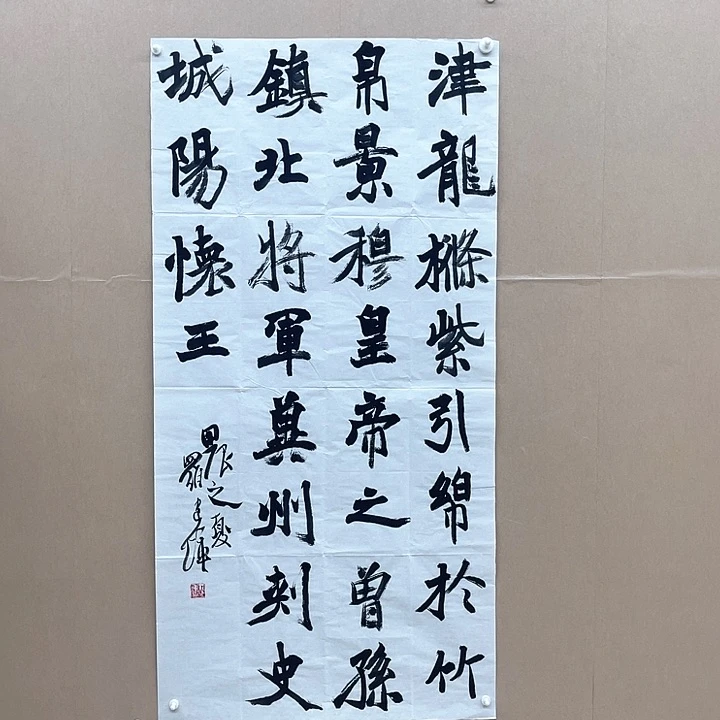 津龍樤紫引綿於竹
帛景穆皇帝之曽孫
鎮北將軍冀州刺史
城陽懷王
甲辰之夏
羅